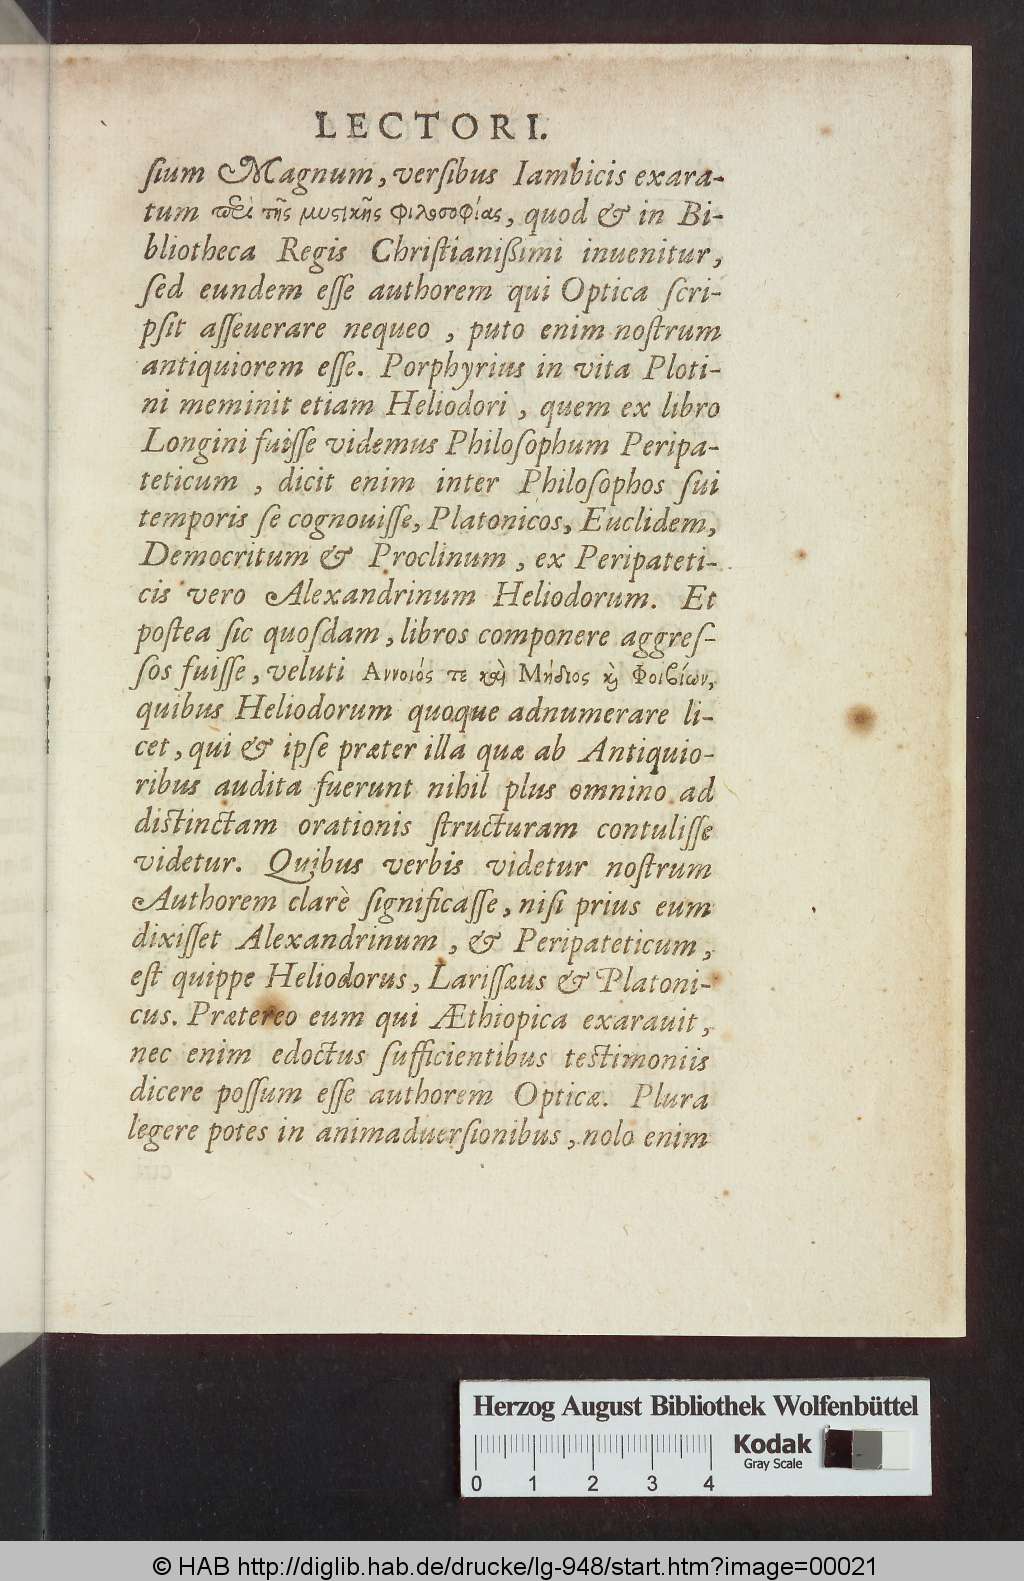 LECTORI.
sium Magnum, versibus Iambicis exara-
tum περὶ τῆς μυστικῆς φιλοσοφίας, quod & in Bi-
bliotheca Regis Christianißimi inuenitur,
sed eundem esse authorem qui Optica scri-
psit asseuerare nequeo, puto enim nostrum
antiquiorem esse. Porphyrius in vita Ploti-
ni meminit etiam Heliodori, quem ex libro
Longini fuisse videmus Philosophum Peripa-
teticum, dicit enim inter Philosophos sui
temporis se cognouisse, Platonicos, Euclidem,
Democritum & Proclinum, ex Peripateti-
cis vero Alexandrinum Heliodorum. Et
postea sic quosdam, libros componere aggres-
sos fuisse, veluti Αννοιός τε καὶ Μήδιος καὶ Φοιβίων,
quibus Heliodorum quoque adnumerare li-
cet, qui & ipse præter illa quæ ab Antiquio-
ribus audita fuerunt nihil plus omnino ad
distinctam orationis structuram contulisse
videtur. Quibus verbis videtur nostrum
Authorem clarè significasse, nisi prius eum
dixisset Alexandrinum, & Peripateticum,
est quippe Heliodorus, Larissæus & Platoni-
cus. Prætereo eum qui Æthiopica exarauit,
nec enim edoctus sufficientibus testimoniis
dicere possum esse authorem Opticæ. Plura
legere potes in animaduersionibus, nolo enim
Herzog August Bibliothek Wolfenbüttel
Kodak
Gray Scale
0 1 2 3 4
© HAB http://diglib.hab.de/drucke/lg-948/start.htm?image=00021